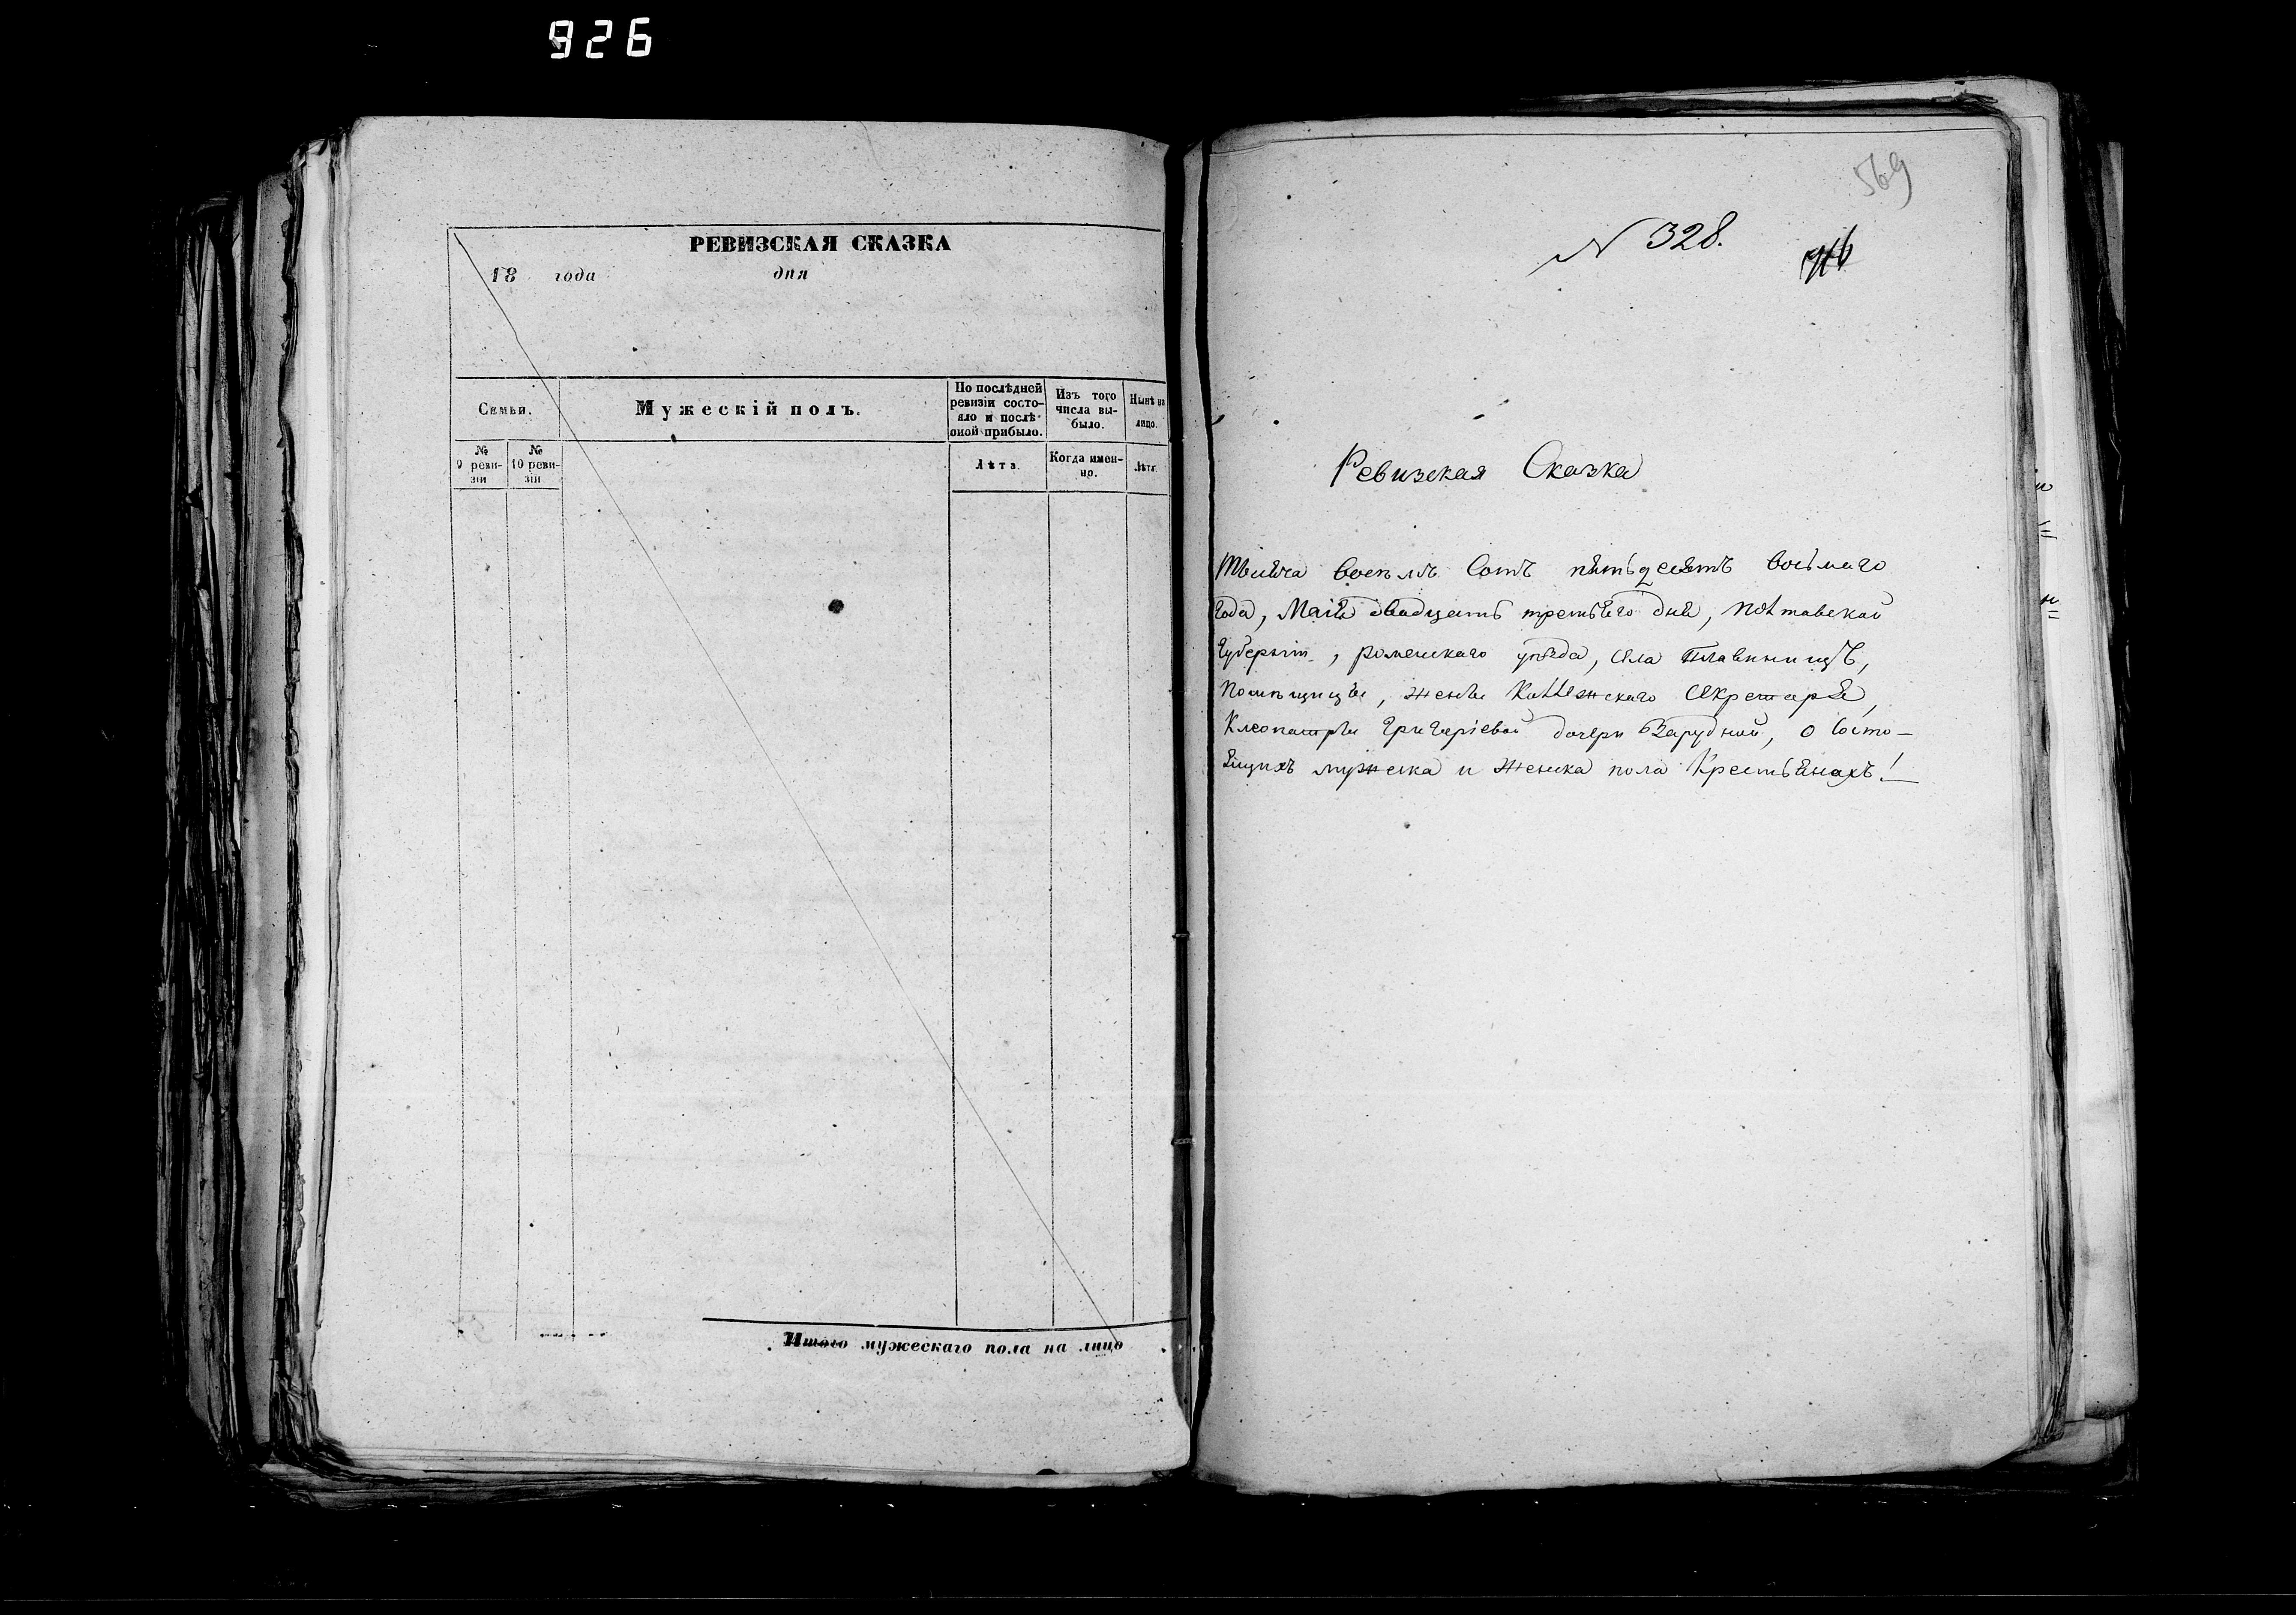 926
РЕВИЗСКАЯ СКАЗКА
18 года дня
Семьи.
Мужескій полъ.
По послѣдней ревизіи состояло и послѣ оной прибыло.
Изъ того числа выбыло.
Нынѣ на лицо.
№ 9 ревизіи
№ 10 ревизіи
Лѣта.
Когда именно.
Лѣта.
Итого мужескаго пола на лицо
569
N 328.
Ревизская Сказка
Тысяча восемь сотъ пятьдесятъ восьмаго
года, Маія двадцать третьяго дня, Полтавской
Губерніи, роменскаго уѣзда, села
помѣщицы, жены Коллежскаго Секретаря,
Клеопатры Григоріевой дочери Зарудной, о состо-
ящихъ мужеска и женска пола Крестьянахъ!